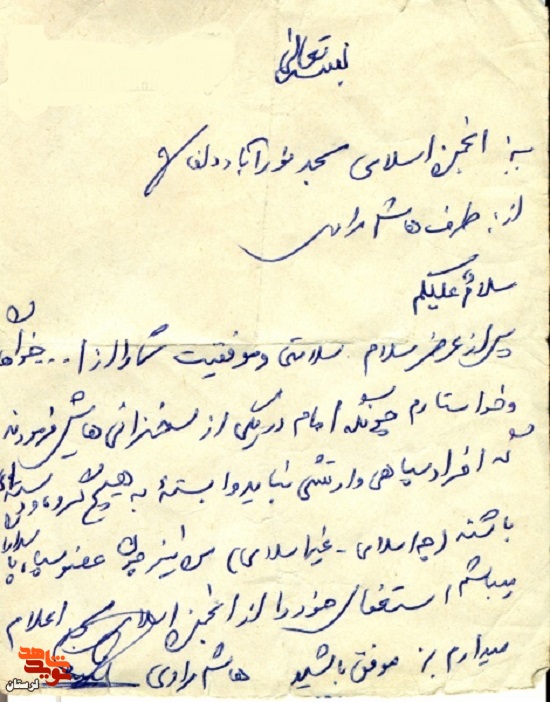 بسمه تعالی
به: انجمن اسلامی مسجد نورآباد دلفان
از: طرف هاشم مرادی
سلام علیکم
پس از عرض سلام سلامتی و موفقیت شما را از ا... خواهان
و خواستارم چونکه امام در یکی از سخنرانی هایش فرمودند
که افراد سپاهی و ارتشی نباید وابسته به هیچ گروه و دسته‌ای
باشند (چه اسلامی - غیراسلامی) من نیز چون عضو سپاه پاسداران
میباشم استعفای خود را از انجمن اسلامی مسجد اعلام
میدارم موفق باشید هاشم مرادی
شاهد
نوید
لرستان